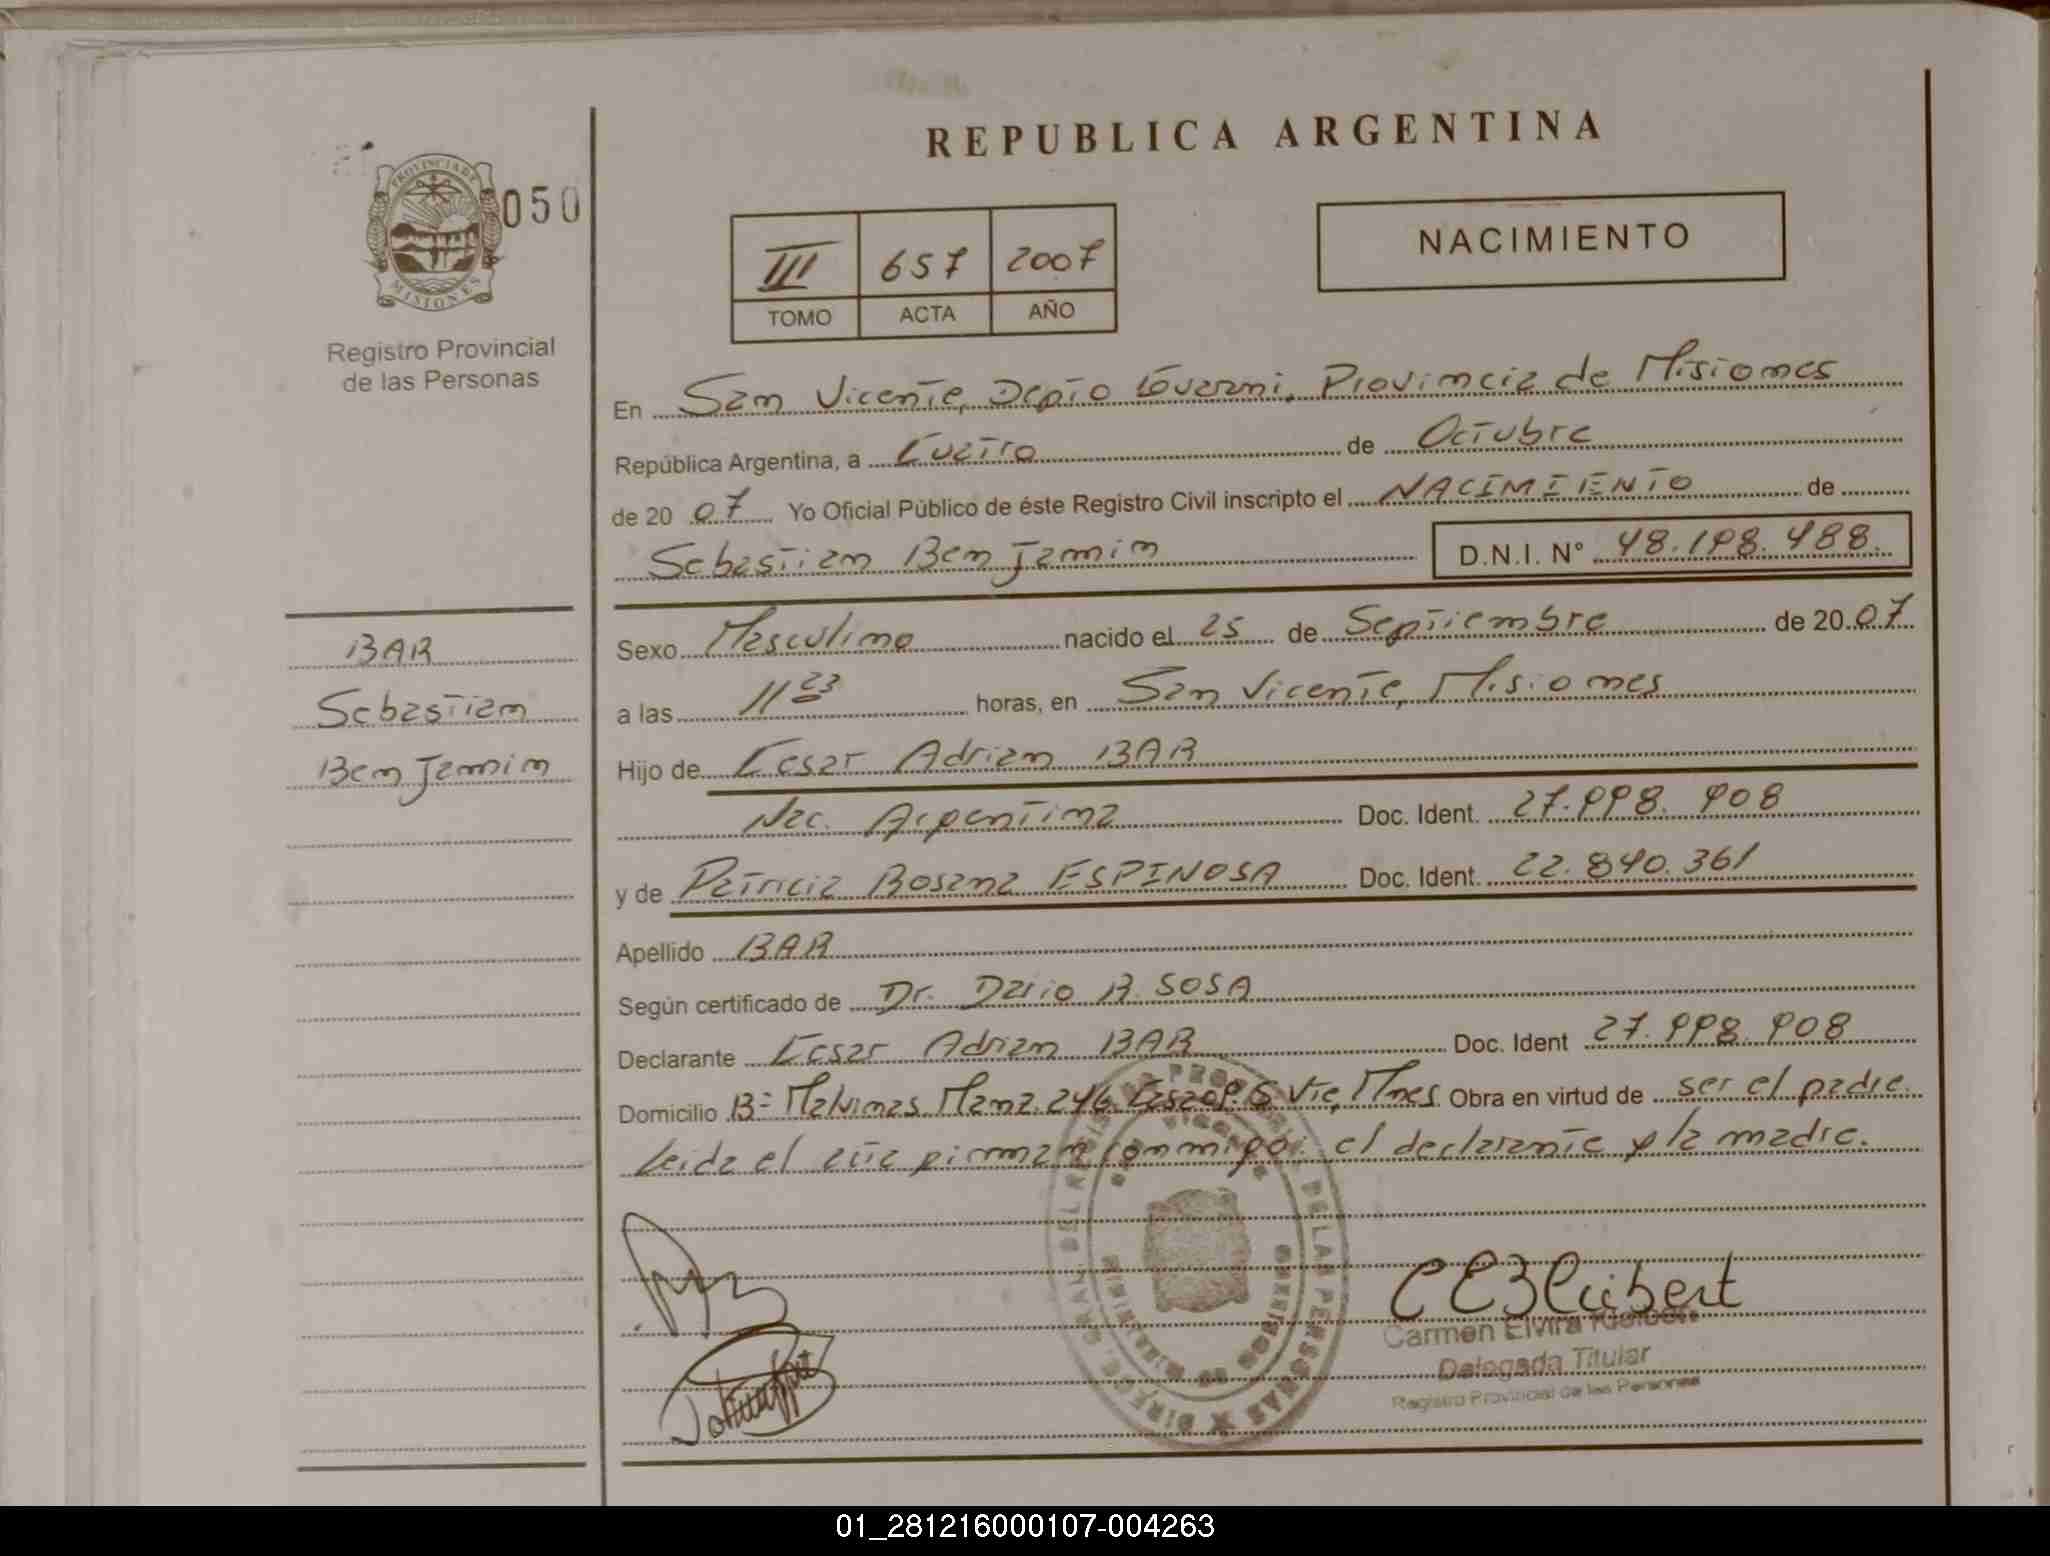 REPUBLICA ARGENTINA
PROVINCIA DE
MISIONES
050
Registro Provincial
de las Personas
III 657 2007
TOMO ACTA AÑO
NACIMIENTO
En San Vicente, Depto Guarani, Provincia de Misiones
República Argentina, a Cuatro de Octubre
de 2007 Yo Oficial Público de éste Registro Civil inscripto el NACIMIENTO de
Sebastian Benjamin D.N.I. N° 48.198.488.
BAR
Sebastian
Benjamin
Sexo Masculino nacido el 25 de Septiembre de 2007
a las 11 23 horas, en San Vicente, Misiones
Hijo de Cesar Adrian BAR
Nac. Argentina Doc. Ident. 27.998.908
y de Patricia Rosana ESPINOSA Doc. Ident. 22.840.361
Apellido BAR
Según certificado de Dr. Dario R. SOSA
Declarante Cesar Adrian BAR Doc. Ident 27.998.908
Domicilio B= Malvinas Manz. 246 Casa 09. S. Vte, Mnes Obra en virtud de ser el padre.
Leida el acta firman conmigo: el declarante y la madre.
Carmen Elvira
Delegada Titular
Registro Provincial de las Personas
01_281216000107-004263